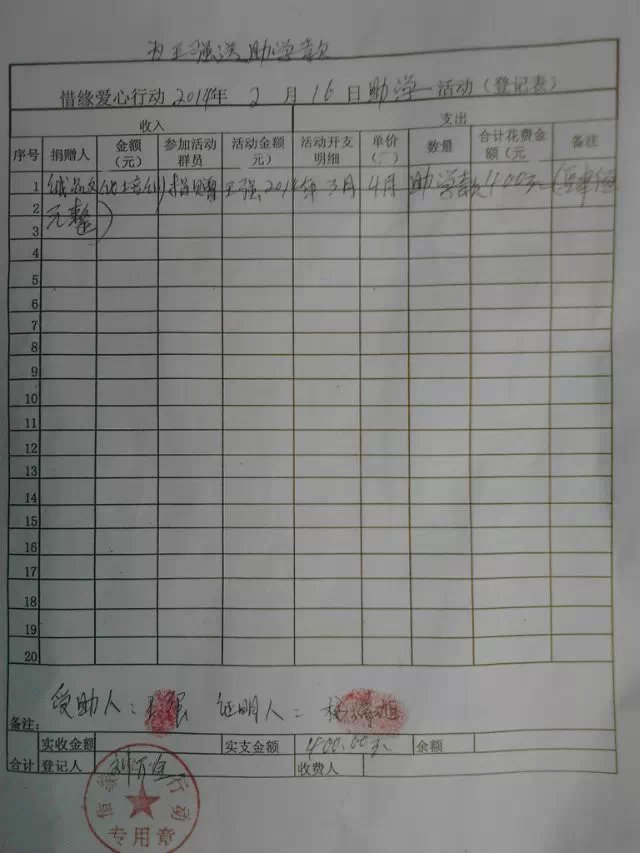 为王强送助学款
惜缘爱心行动2014年2月16日助学活动(登记表)
收入 支出
序号 捐赠人 金额(元) 参加活动群员 活动金额(元) 活动开支明细 单价(元) 数量 合计花费金额(元 备注
1 捐赠王强2014年3月4月助学款400元
2 元整)
3
4
5
6
7
8
9
10
11
12
13
14
15
16
17
18
19
20
受助人:王强 证明人:
备注:
实收金额 实支金额 400.00元 余额
合计 登记人 收费人
惜缘爱心行动
专用章